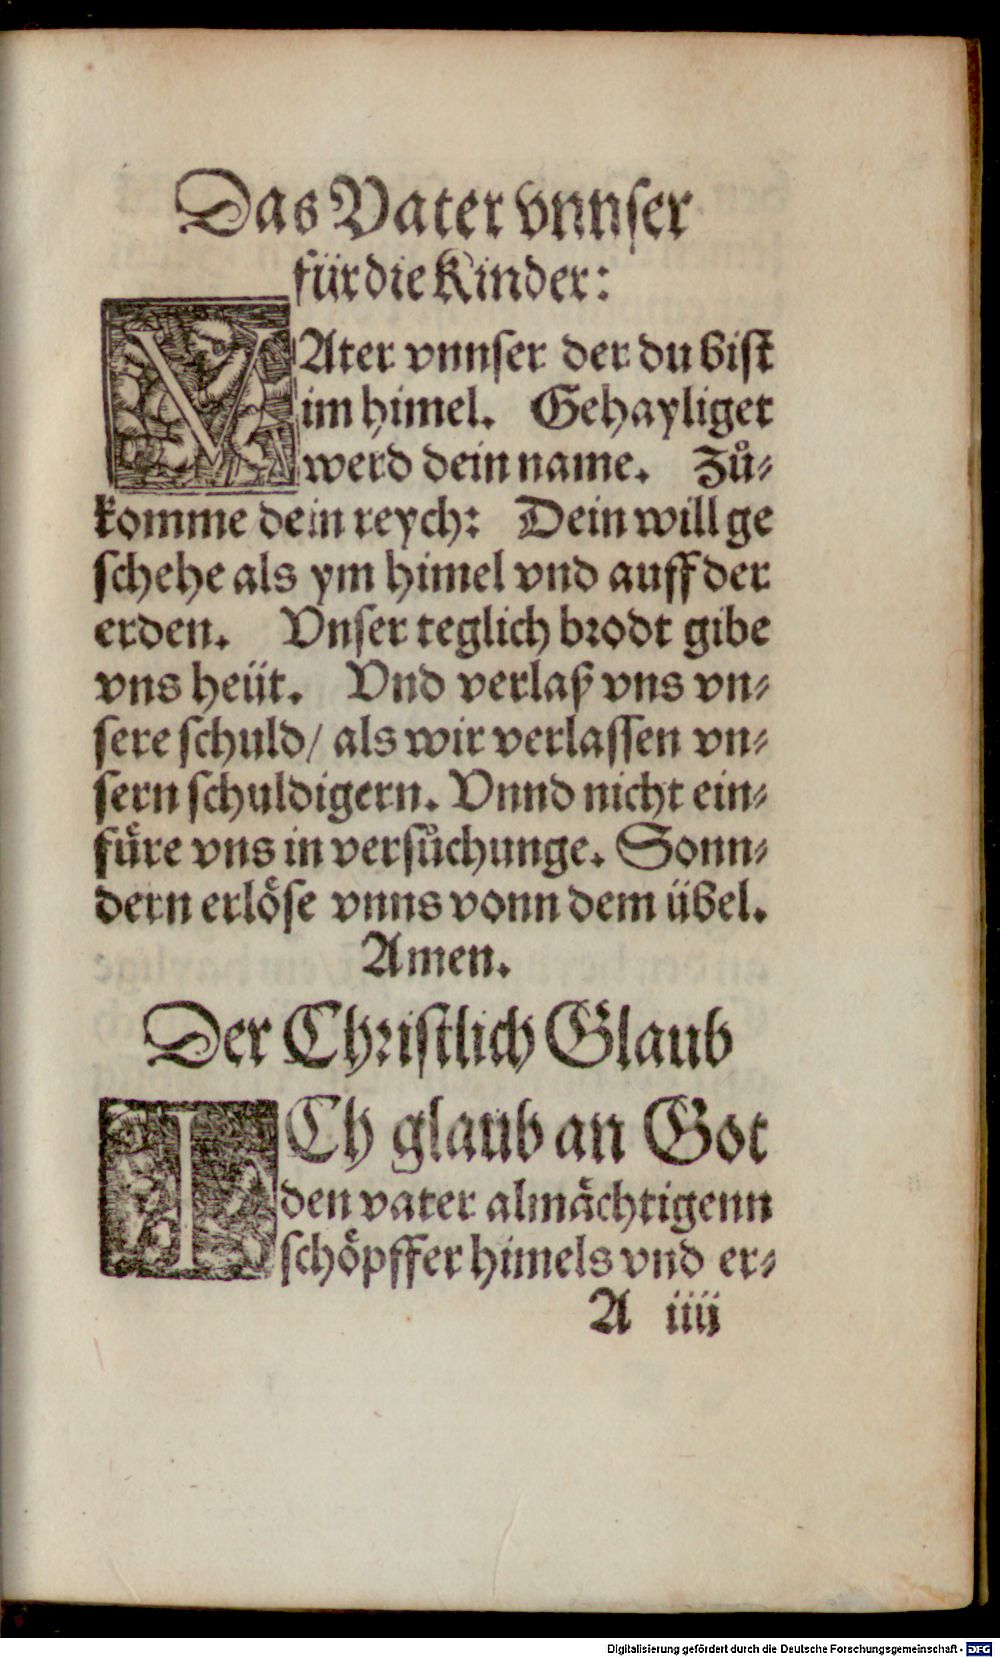 Das Vater vnnser
für die Kinder:
VAter vnnser der du bist
im himel. Gehayliget
werd dein name. Zuͦ-
komme dein reych: Dein will ge
schehe als ym himel vnd auff der
erden. Vnser teglich brodt gibe
vns heüt. Vnd verlaß vns vn-
sere schuld/ als wir verlassen vn-
sern schuldigern. Vnnd nicht ein-
fuͤre vns in versuͦchunge. Sonn-
dern erloͤse vnns vonn dem übel.
Amen.
Der Christlich Glaub
ICh glaub an Got
den vater almaͤchtigenn
schoͤpffer himels vnd er-
A iiij
Digitalisierung gefördert durch die Deutsche Forschungsgemeinschaft - DFG